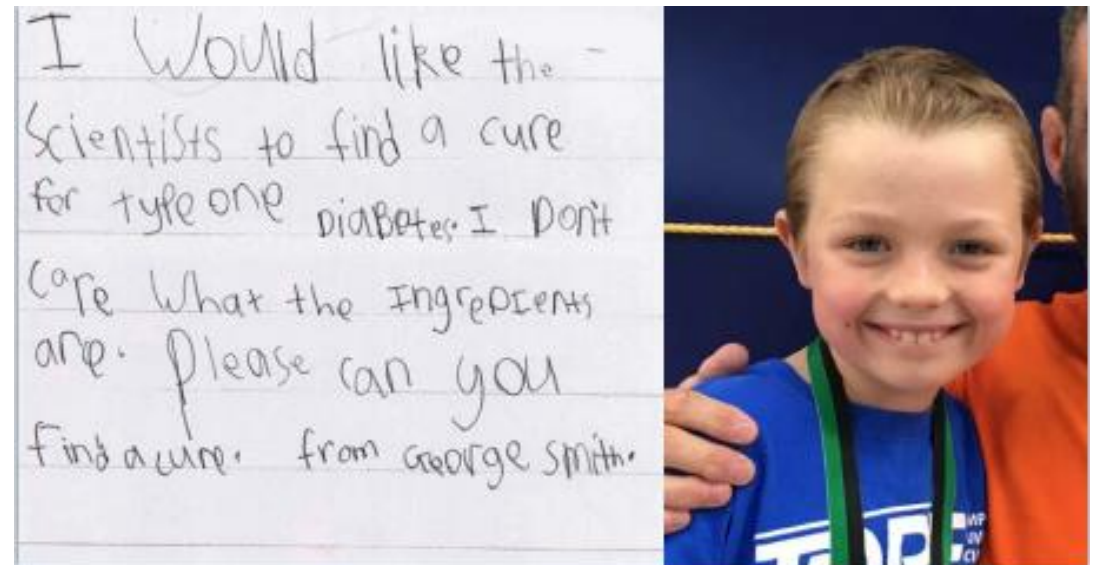 I Would like the -
Scientists to find a cure
for type one DiaBetes. I Don't
Care What the IngreDients
are. Please can you
find a cure. from George smith.